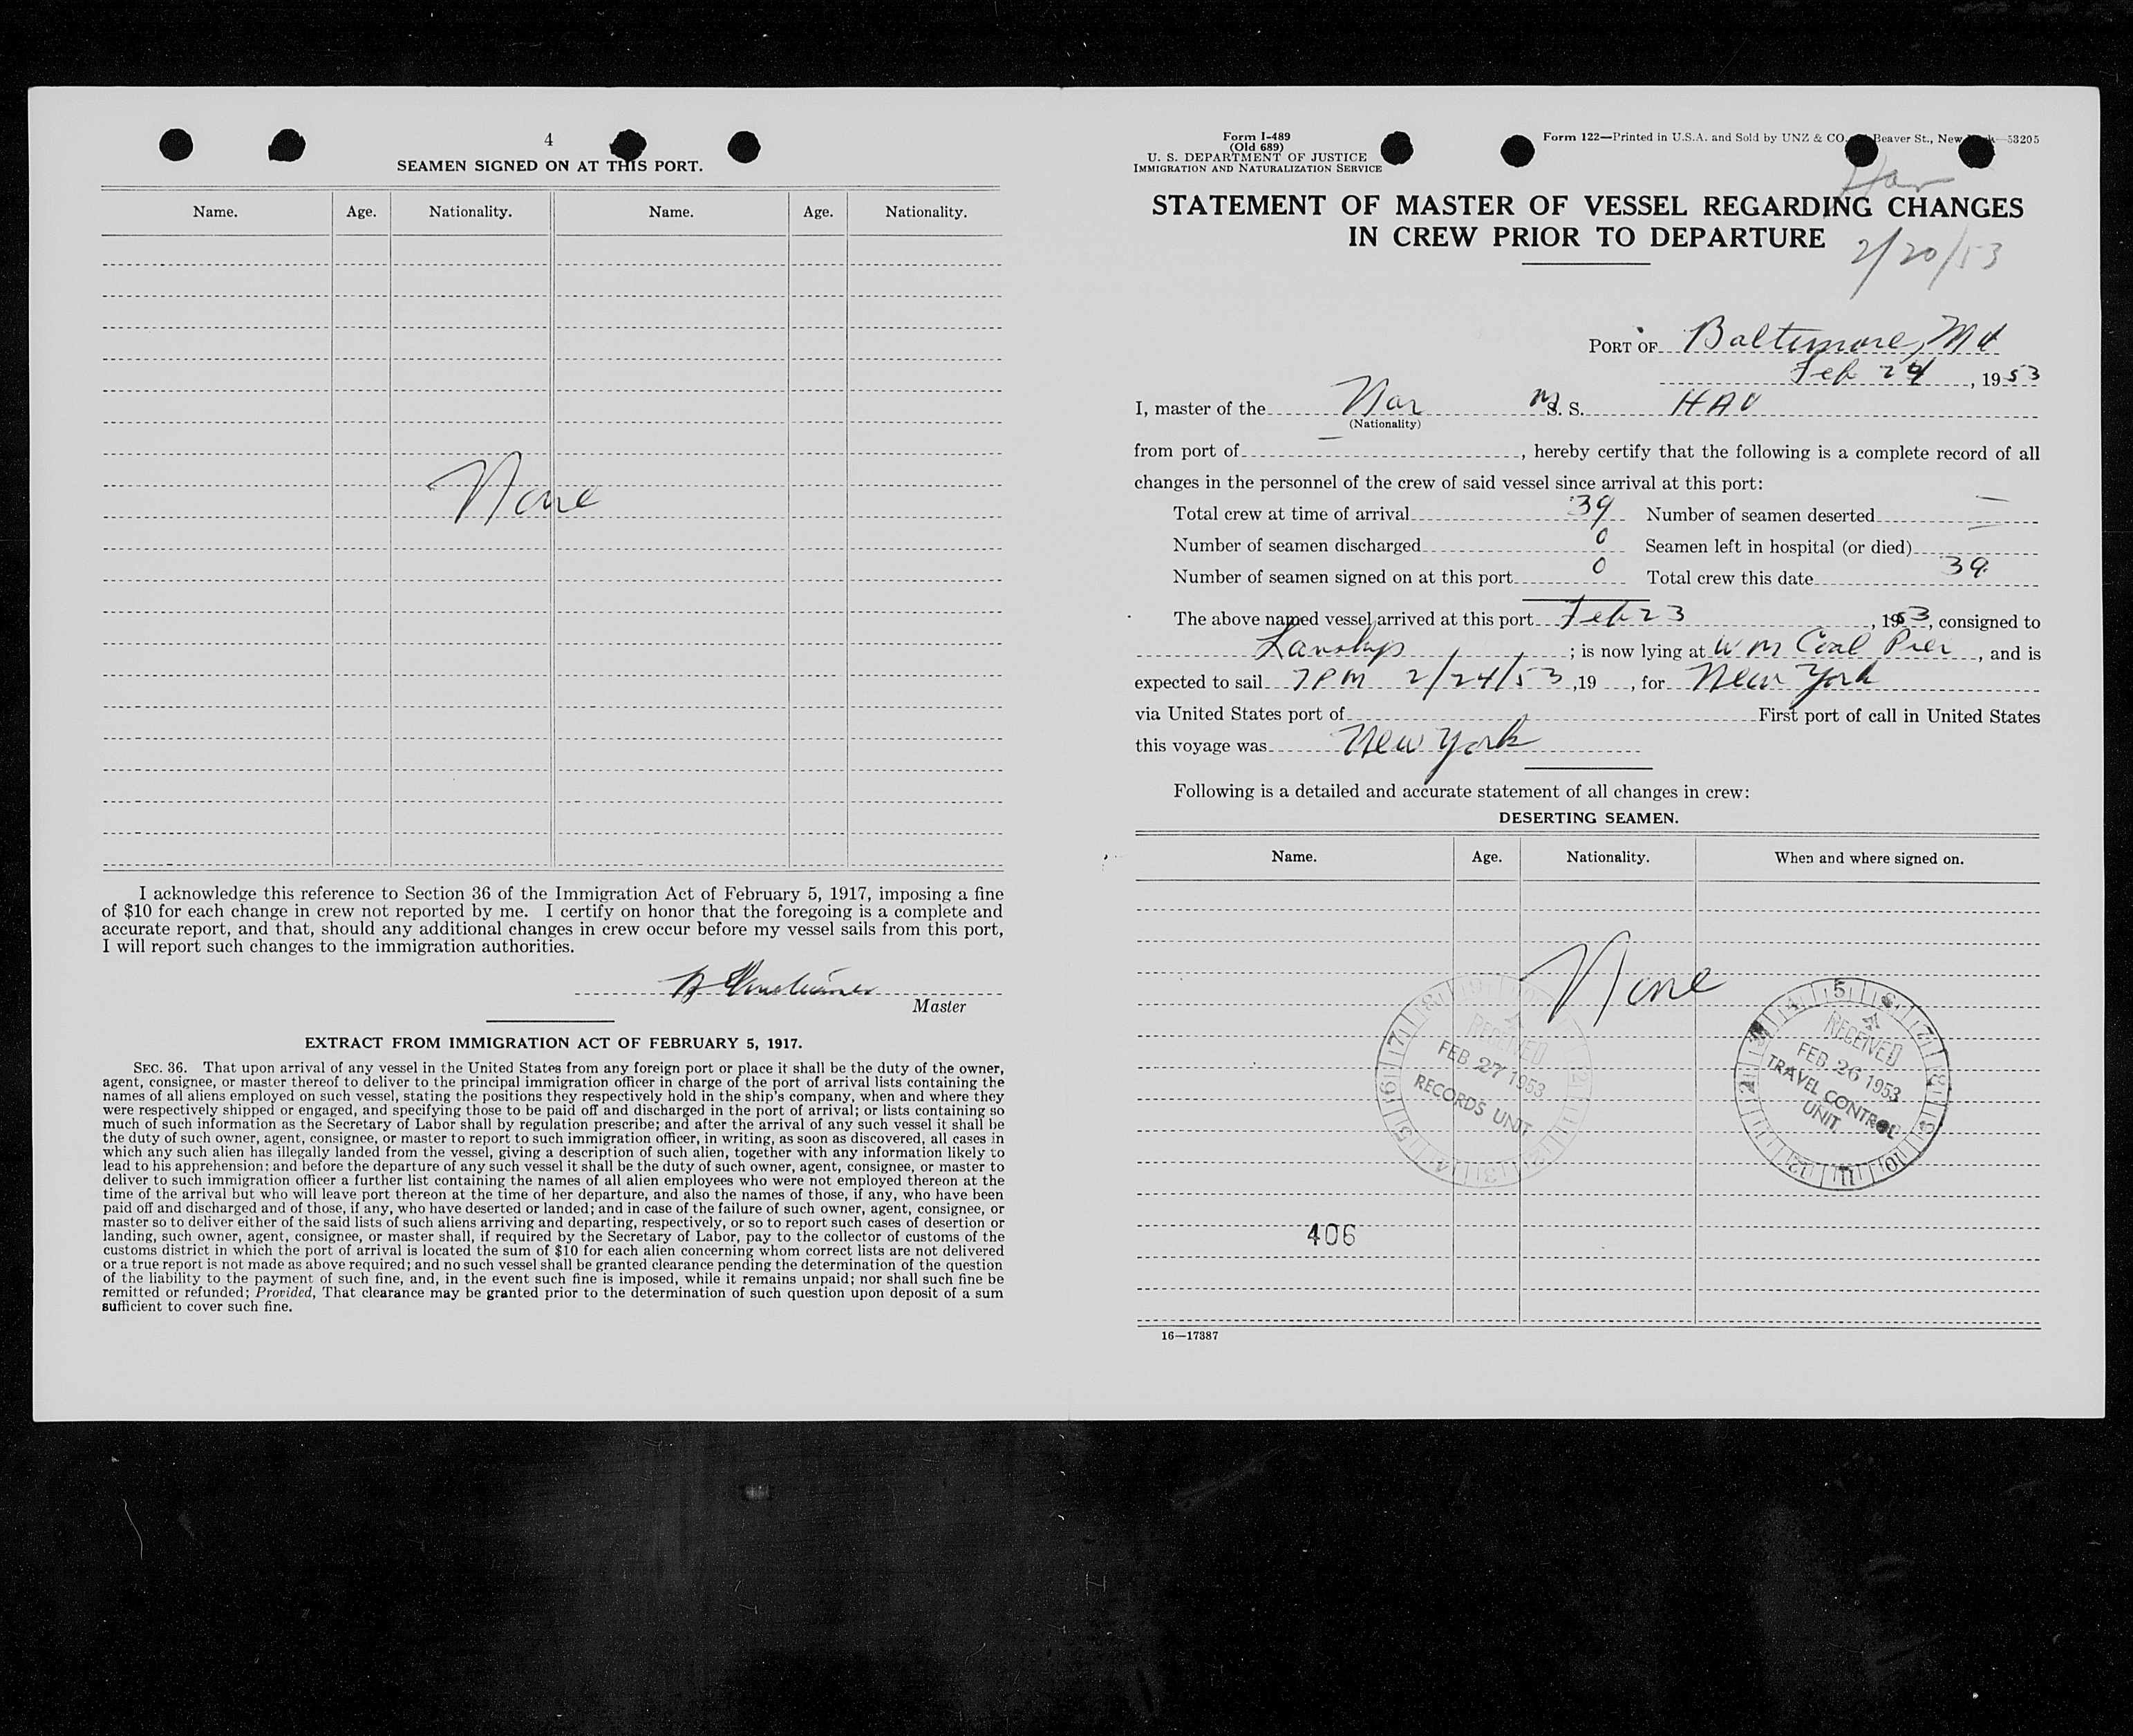 4
SEAMEN SIGNED ON AT THIS PORT.
Name. Age. Nationality. Name. Age. Nationality.
None
I acknowledge this reference to Section 36 of the Immigration Act of February 5, 1917, imposing a fine
of $10 for each change in crew not reported by me. I certify on honor that the foregoing is a complete and
accurate report, and that, should any additional changes in crew occur before my vessel sails from this port,
I will report such changes to the immigration authorities.
Master
EXTRACT FROM IMMIGRATION ACT OF FEBRUARY 5, 1917.
SEC. 36. That upon arrival of any vessel in the United States from any foreign port or place it shall be the duty of the owner,
agent, consignee, or master thereof to deliver to the principal immigration officer in charge of the port of arrival lists containing the
names of all aliens employed on such vessel, stating the positions they respectively hold in the ship's company, when and where they
were respectively shipped or engaged, and specifying those to be paid off and discharged in the port of arrival; or lists containing so
much of such information as the Secretary of Labor shall by regulation prescribe; and after the arrival of any such vessel it shall be
the duty of such owner, agent, consignee, or master to report to such immigration officer, in writing, as soon as discovered, all cases in
which any such alien has illegally landed from the vessel, giving a description of such alien, together with any information likely to
lead to his apprehension; and before the departure of any such vessel it shall be the duty of such owner, agent, consignee, or master to
deliver to such immigration officer a further list containing the names of all alien employees who were not employed thereon at the
time of the arrival but who will leave port thereon at the time of her departure, and also the names of those, if any, who have been
paid off and discharged and of those, if any, who have deserted or landed; and in case of the failure of such owner, agent, consignee, or
master so to deliver either of the said lists of such aliens arriving and departing, respectively, or so to report such cases of desertion or
landing, such owner, agent, consignee, or master shall, if required by the Secretary of Labor, pay to the collector of customs of the
customs district in which the port of arrival is located the sum of $10 for each alien concerning whom correct lists are not delivered
or a true report is not made as above required; and no such vessel shall be granted clearance pending the determination of the question
of the liability to the payment of such fine, and, in the event such fine is imposed, while it remains unpaid; nor shall such fine be
remitted or refunded; Provided, That clearance may be granted prior to the determination of such question upon deposit of a sum
sufficient to cover such fine.
Form I-489
(Old 689)
U. S. DEPARTMENT OF JUSTICE
IMMIGRATION AND NATURALIZATION SERVICE
Form 122—Printed in U.S.A. and Sold by UNZ & CO. Beaver St., New 53205
STATEMENT OF MASTER OF VESSEL REGARDING CHANGES
IN CREW PRIOR TO DEPARTURE
2/20/53
PORT OF Baltimore, Md
Feb 24, 1953
I, master of the Nor M S. S. HAV
(Nationality)
from port of —, hereby certify that the following is a complete record of all
changes in the personnel of the crew of said vessel since arrival at this port:
Total crew at time of arrival 39 Number of seamen deserted —
Number of seamen discharged 0 Seamen left in hospital (or died) —
Number of seamen signed on at this port 0 Total crew this date 39
The above named vessel arrived at this port Feb 23, 1953, consigned to
; is now lying at W M Coal Pier, and is
expected to sail 7 PM 2/24/53, 19 , for New York
via United States port of First port of call in United States
this voyage was New York
Following is a detailed and accurate statement of all changes in crew:
DESERTING SEAMEN.
Name. Age. Nationality. When and where signed on.
None
RECEIVED
FEB 27 1953
RECORDS UNIT
RECEIVED
FEB 26 1953
TRAVEL CONTROL
UNIT
406
16—17387